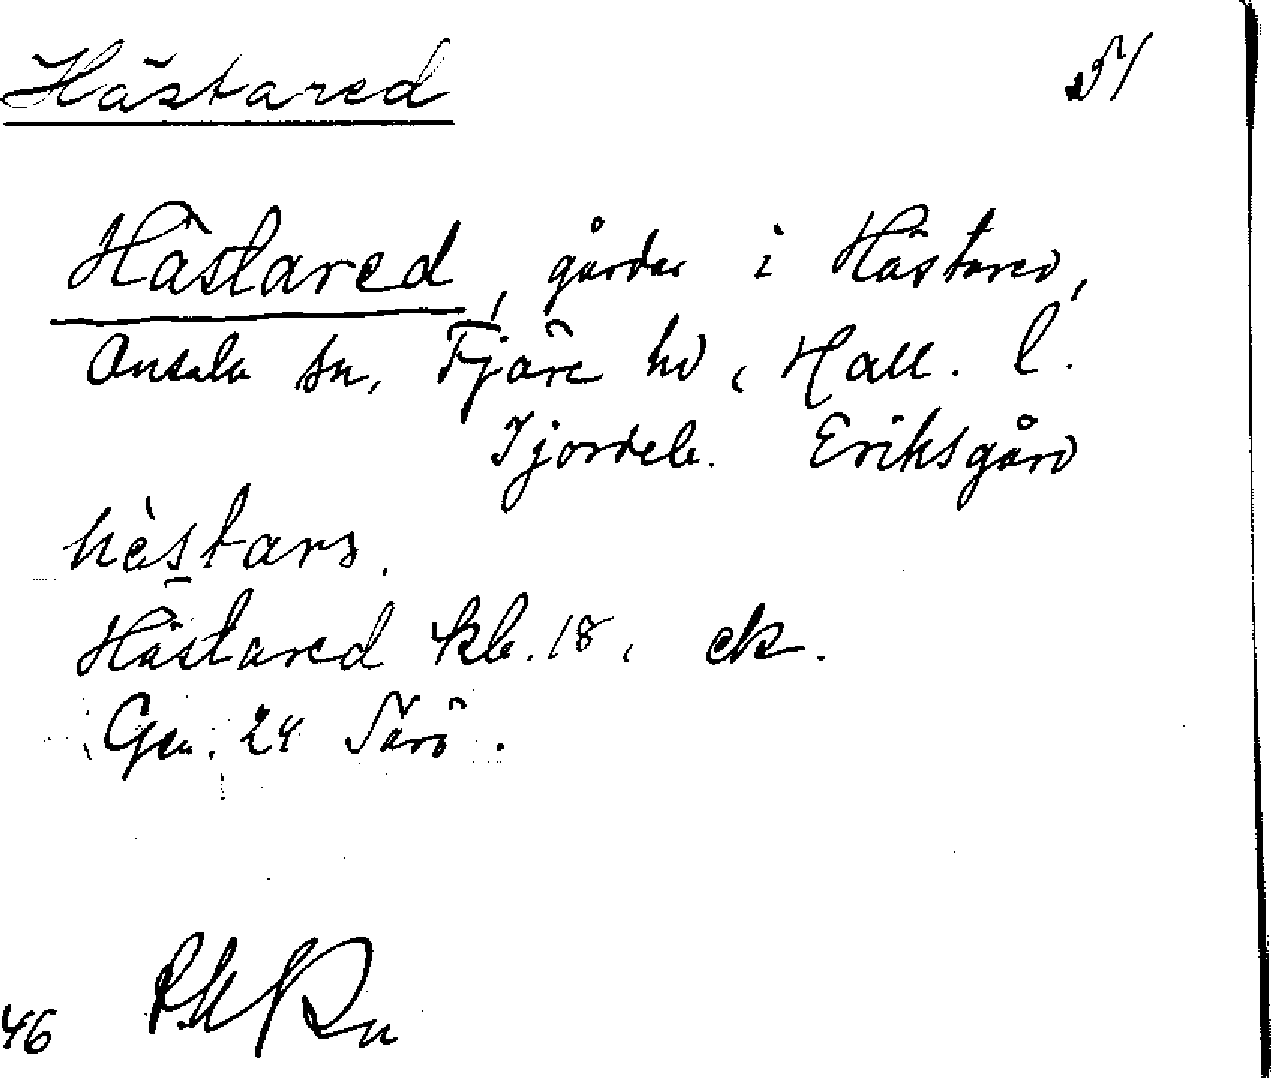 Hästared 51
Hästared, gårdar i Hästared,
Onsala sn, Fjäre hd, Hall. l.
I jordeb. Eriksgård
hästars.
Hästared kb. 18, ek.
Gen. 24 Särö.
46